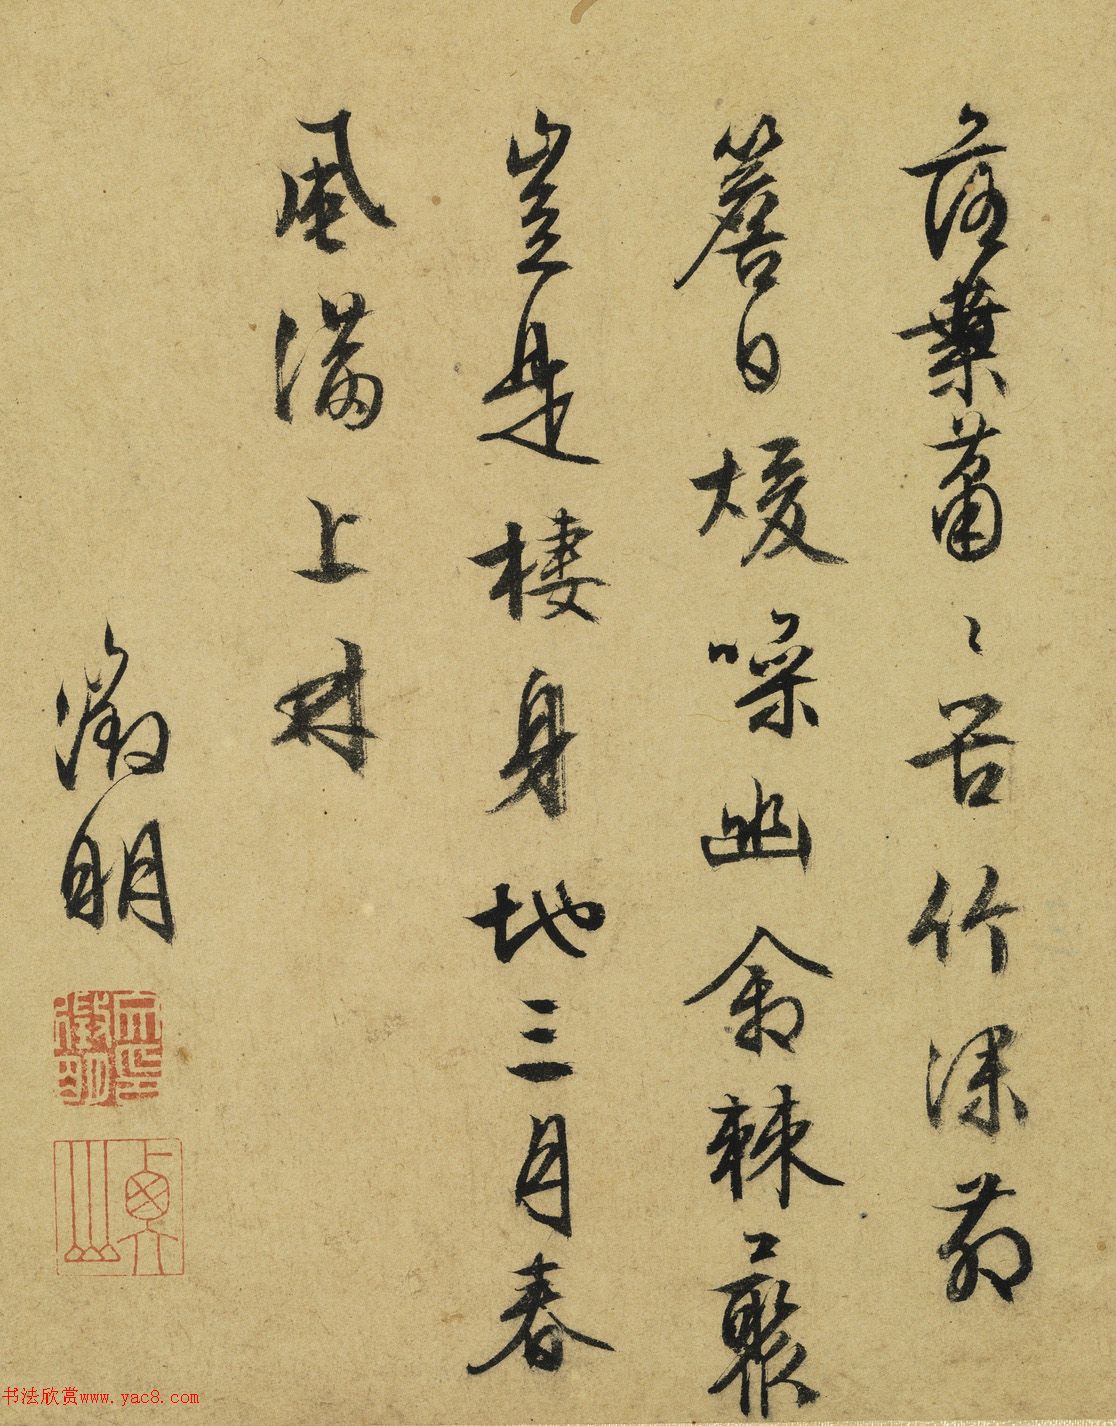 落葉蕭〻苦竹深茆
簷日煖噪幽禽棘叢
豈是棲身地三月春
風滿上林
徵明
停雲
書法欣赏www.yac8.com